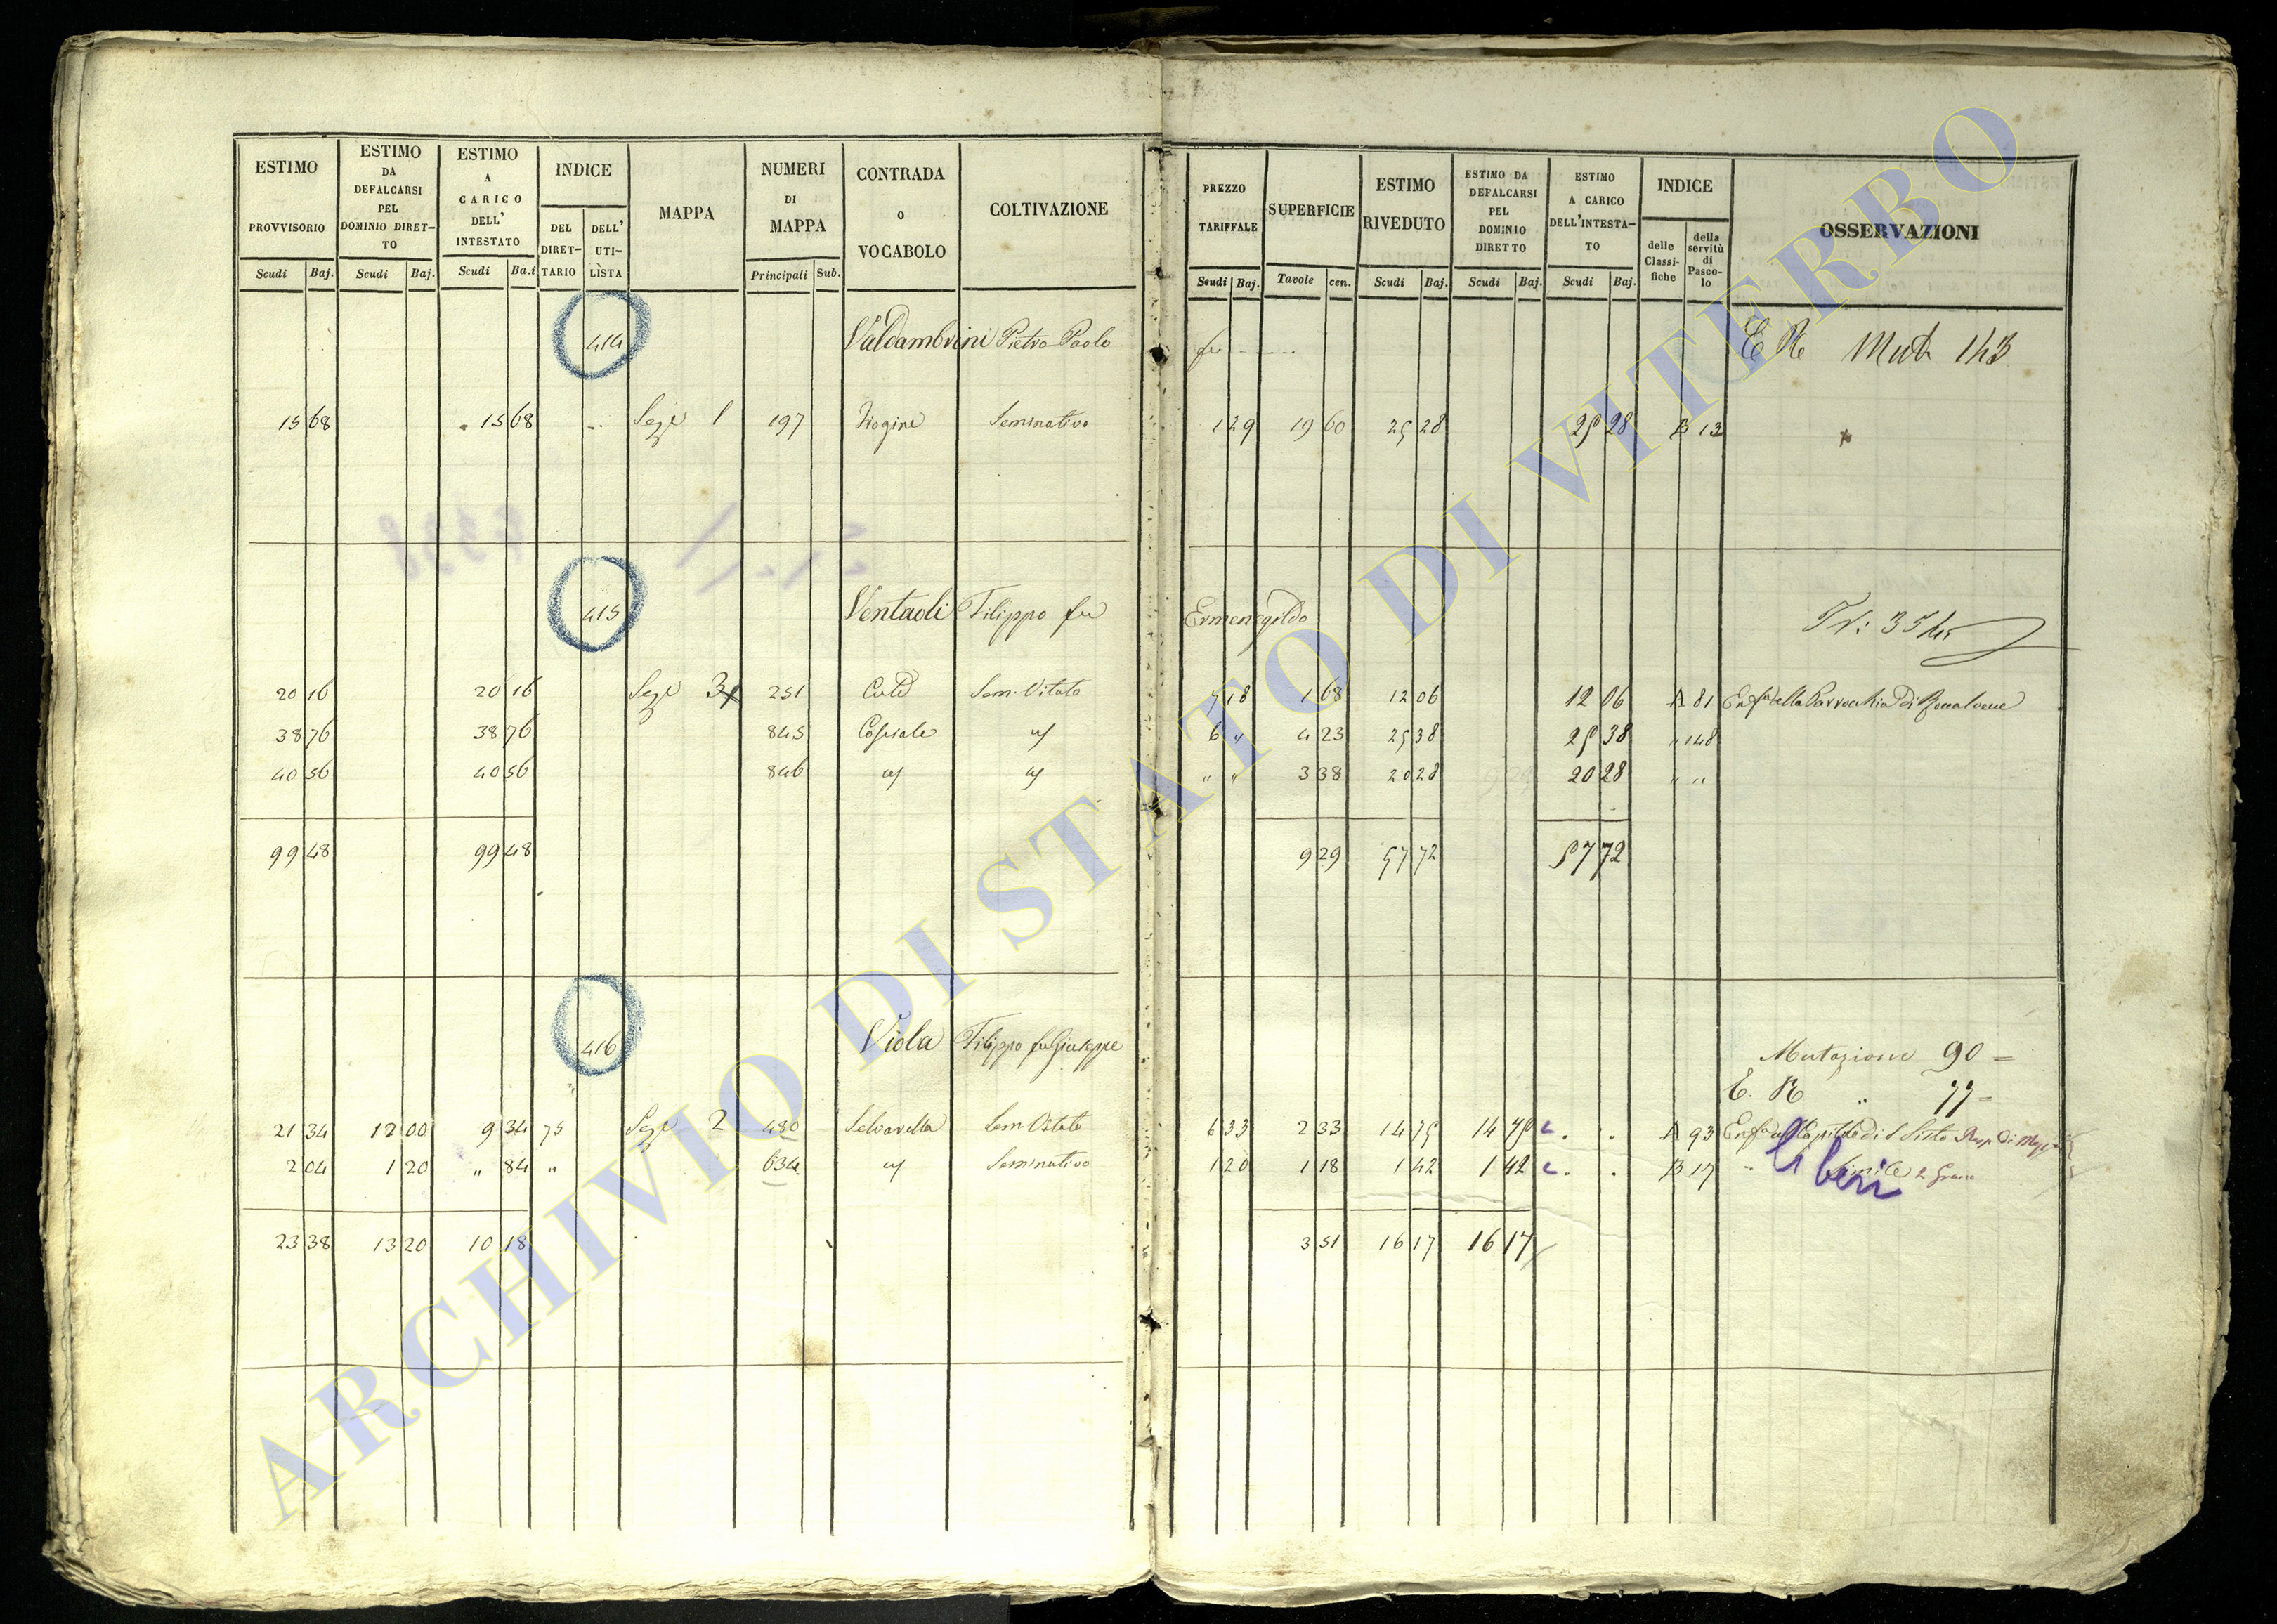 ESTIMO PROVVISORIO Scudi Baj.
ESTIMO DA DEFALCARSI PEL DOMINIO DIRETTO Scudi Baj.
ESTIMO A CARICO DELL' INTESTATO Scudi Ba.i
INDICE DEL DIRETTARIO DELL' UTILISTA
MAPPA
NUMERI DI MAPPA Principali Sub.
CONTRADA O VOCABOLO
COLTIVAZIONE
PREZZO TARIFFALE Scudi Baj.
SUPERFICIE Tavole cen.
ESTIMO RIVEDUTO Scudi Baj.
ESTIMO DA DEFALCARSI PEL DOMINIO DIRETTO Scudi Baj.
ESTIMO A CARICO DELL'INTESTATO Scudi Baj.
INDICE delle Classifiche della servitù di Pascolo
OSSERVAZIONI
414 Valdambrini Pietro Paolo fu E R Mut 143
15 68 15 68 Sez.e 1 197 Seminativo 1 29 19 60 25 28 25 28 B 13
415 Ventroli Filippo fu Ermenegildo
20 16 20 16 Sez.e 3 251 Sem. Vitato 7 18 1 68 12 06 12 06 A 81
38 76 38 76 845 6 " 4 23 25 38 25 38 " 148
40 56 40 56 846 " " 3 38 20 28 20 28 " "
99 48 99 48 9 29 57 72 57 72
416 Viola Filippo fu Giuseppe Mutazione 90 =
E. R " 77 =
21 34 12 00 9 34 75 Sez.e 2 480 Selvarella Sem Vitato 6 33 2 33 14 75 14 75 A 93
2 04 1 20 " 84 " 634 Seminativo 1 20 1 18 1 42 1 42 B 17 " Simile
liberi
23 38 13 20 10 18 3 51 16 17 16 17
ARCHIVIO DI STATO DI VITERBO